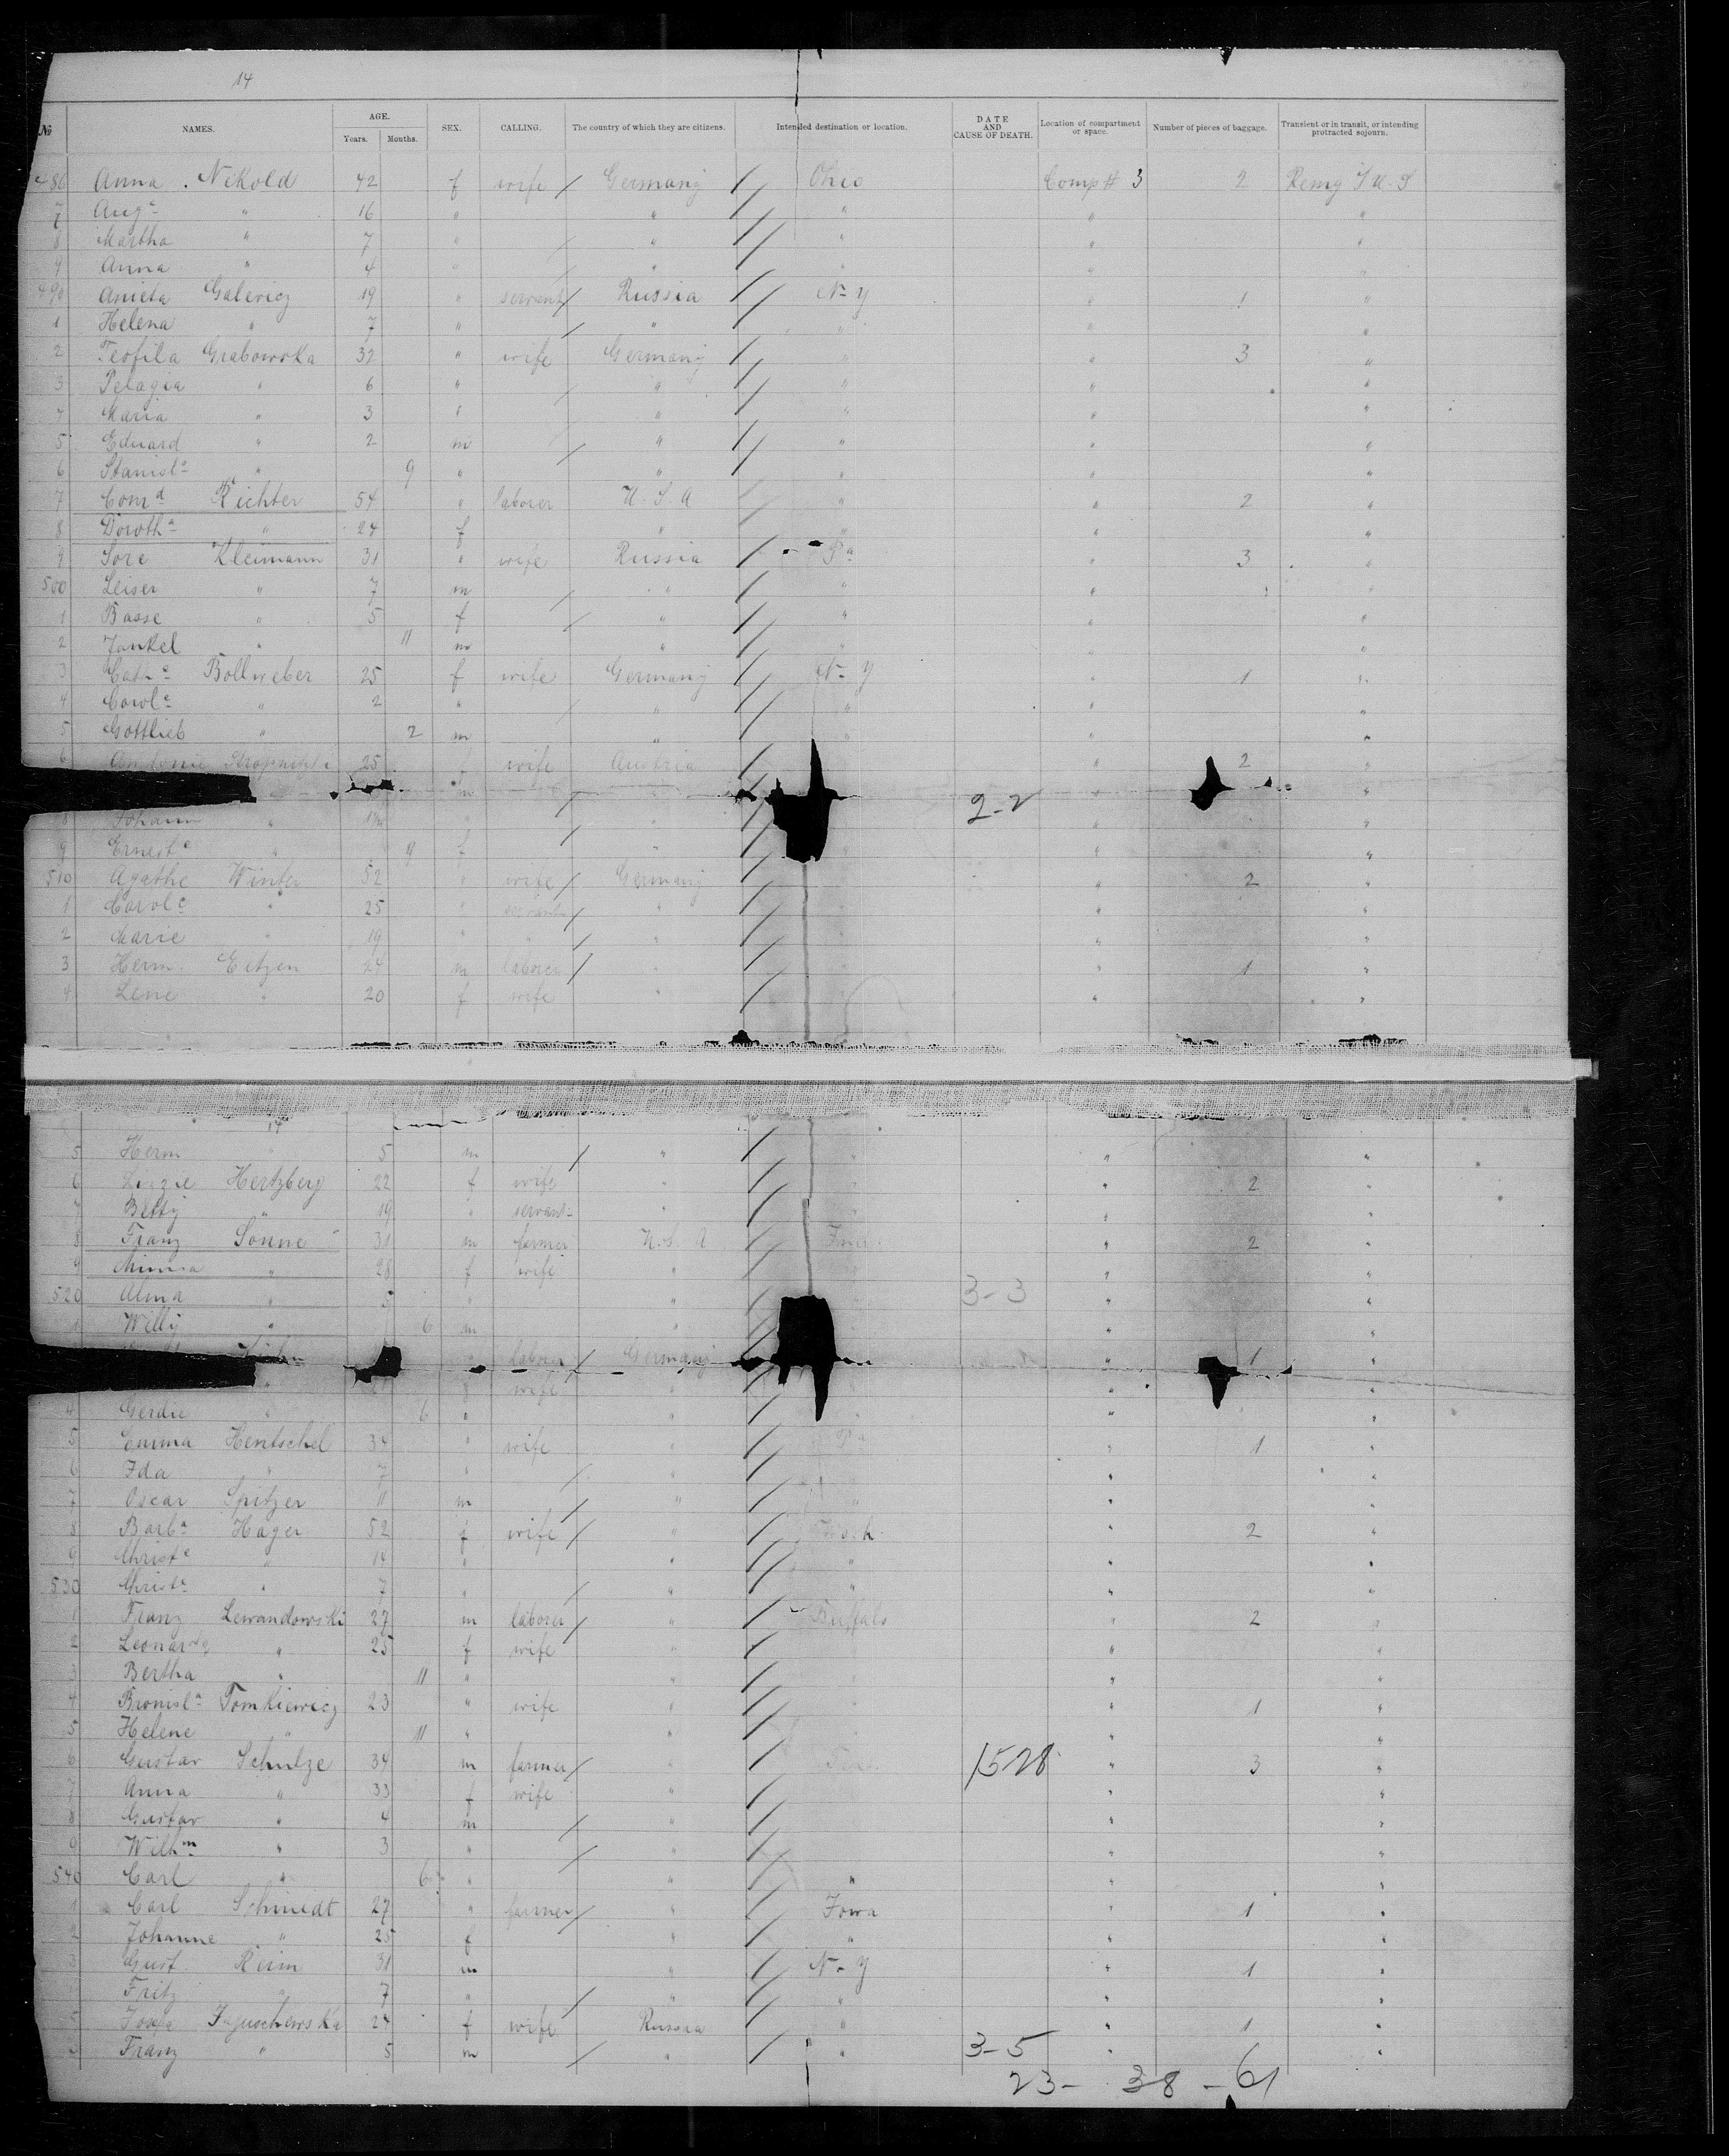 14
№ NAMES. AGE. Years. Months. SEX. CALLING. The country of which they are citizens. Intended destination or location. DATE AND CAUSE OF DEATH. Location of compartment or space. Number of pieces of baggage. Transient or in transit, or intending protracted sojourn.
486 Anna Nikold 42 f wife Germany Ohio Comp # 3 2 Remg I U. S
7 Augᵉ " 16 " " " " "
8 Martha " 7 " " " " "
9 Anna " 4 " " " " "
490 Anieta Galevicz 19 " servant Russia N-Y " 1 "
1 Helena " 7 " " " " "
2 Teofila Grabowska 32 " wife Germany " " 3 "
3 Pelagia " 6 " " " " "
4 Maria " 3 " " " " "
5 Eduard " 2 m " " " "
6 Stanislᵃ " 9 " " " " "
7 Conrᵈ Richter 54 " laborer U. S. A " " 2 "
8 Dorothᵃ " 24 f " " " "
9 Sore Kleimann 31 " wife Russia Pa " 3 "
500 Leiser " 7 m " " " "
1 Basse " 5 f " " " "
2 Jankel " 11 m " " "
3 Cathᵉ Bollweber 25 f wife Germany N-Y " 1 "
4 Carolᵉ " 2 " " " " "
5 Gottlieb " 2 m " " " "
6 25 wife Austria " 2 "
m " "
8 Johann " " " " "
2-2
9 Ernestᵉ " 9 f " " "
510 Agathe Winter 52 " wife Germany " 2 "
1 Carolᵉ " 25 " servant " " "
2 Marie " 19 " " " " "
3 Herm. Eitzen 24 m laborer " " 1 "
4 Lene " 20 f wife " " "
14
5 Herm " 5 m " " " "
6 Lizzie Hertzberg 22 f wife " " " 2 "
7 Betty " 19 " servant " " " "
8 Franz Sonne 31 m farmer U. S. A " 2 "
9 Minna " 28 f wife " " "
520 Alma " 5 " " 3-3 " "
1 Willy " 6 m " " "
laborer Germany " 1 "
wife " " "
4 Gerdie " 6 " " " "
5 Emma Hentschel 34 " wife " Pa " 1 "
6 Ida " 7 " " " "
7 Oscar Spitzer 11 m " " " "
8 Barbᵃ Hager 52 f wife " " 2 "
9 Christᵉ " 14 " " " " "
530 Christᵉ " 7 " " " " "
1 Franz Lewandowski 27 m laborer " Buffalo " 2 "
2 Leonarda " 25 f wife " " "
3 Bertha " 11 " " " "
4 Bronislᵃ Tomkiewicz 23 " wife " " 1 "
5 Helene " 11 " " " "
6 Gustav Schulze 34 m farmer " 1528 " 3 "
7 Anna " 33 f wife " " "
8 Gustav " 4 m " " "
9 Wilhᵐ " 3 " " " "
540 Carl " 6 " " " " "
1 Carl Schmidt 27 " farmer " Iowa " 1 "
2 Johanne " 25 f " " " "
3 Gust. 31 m " N-Y " 1 "
Fritz " 7 " " " " "
24 f wife Russia " " 1 "
Franz " 5 m " " 3-5 " "
23- 38 - 61